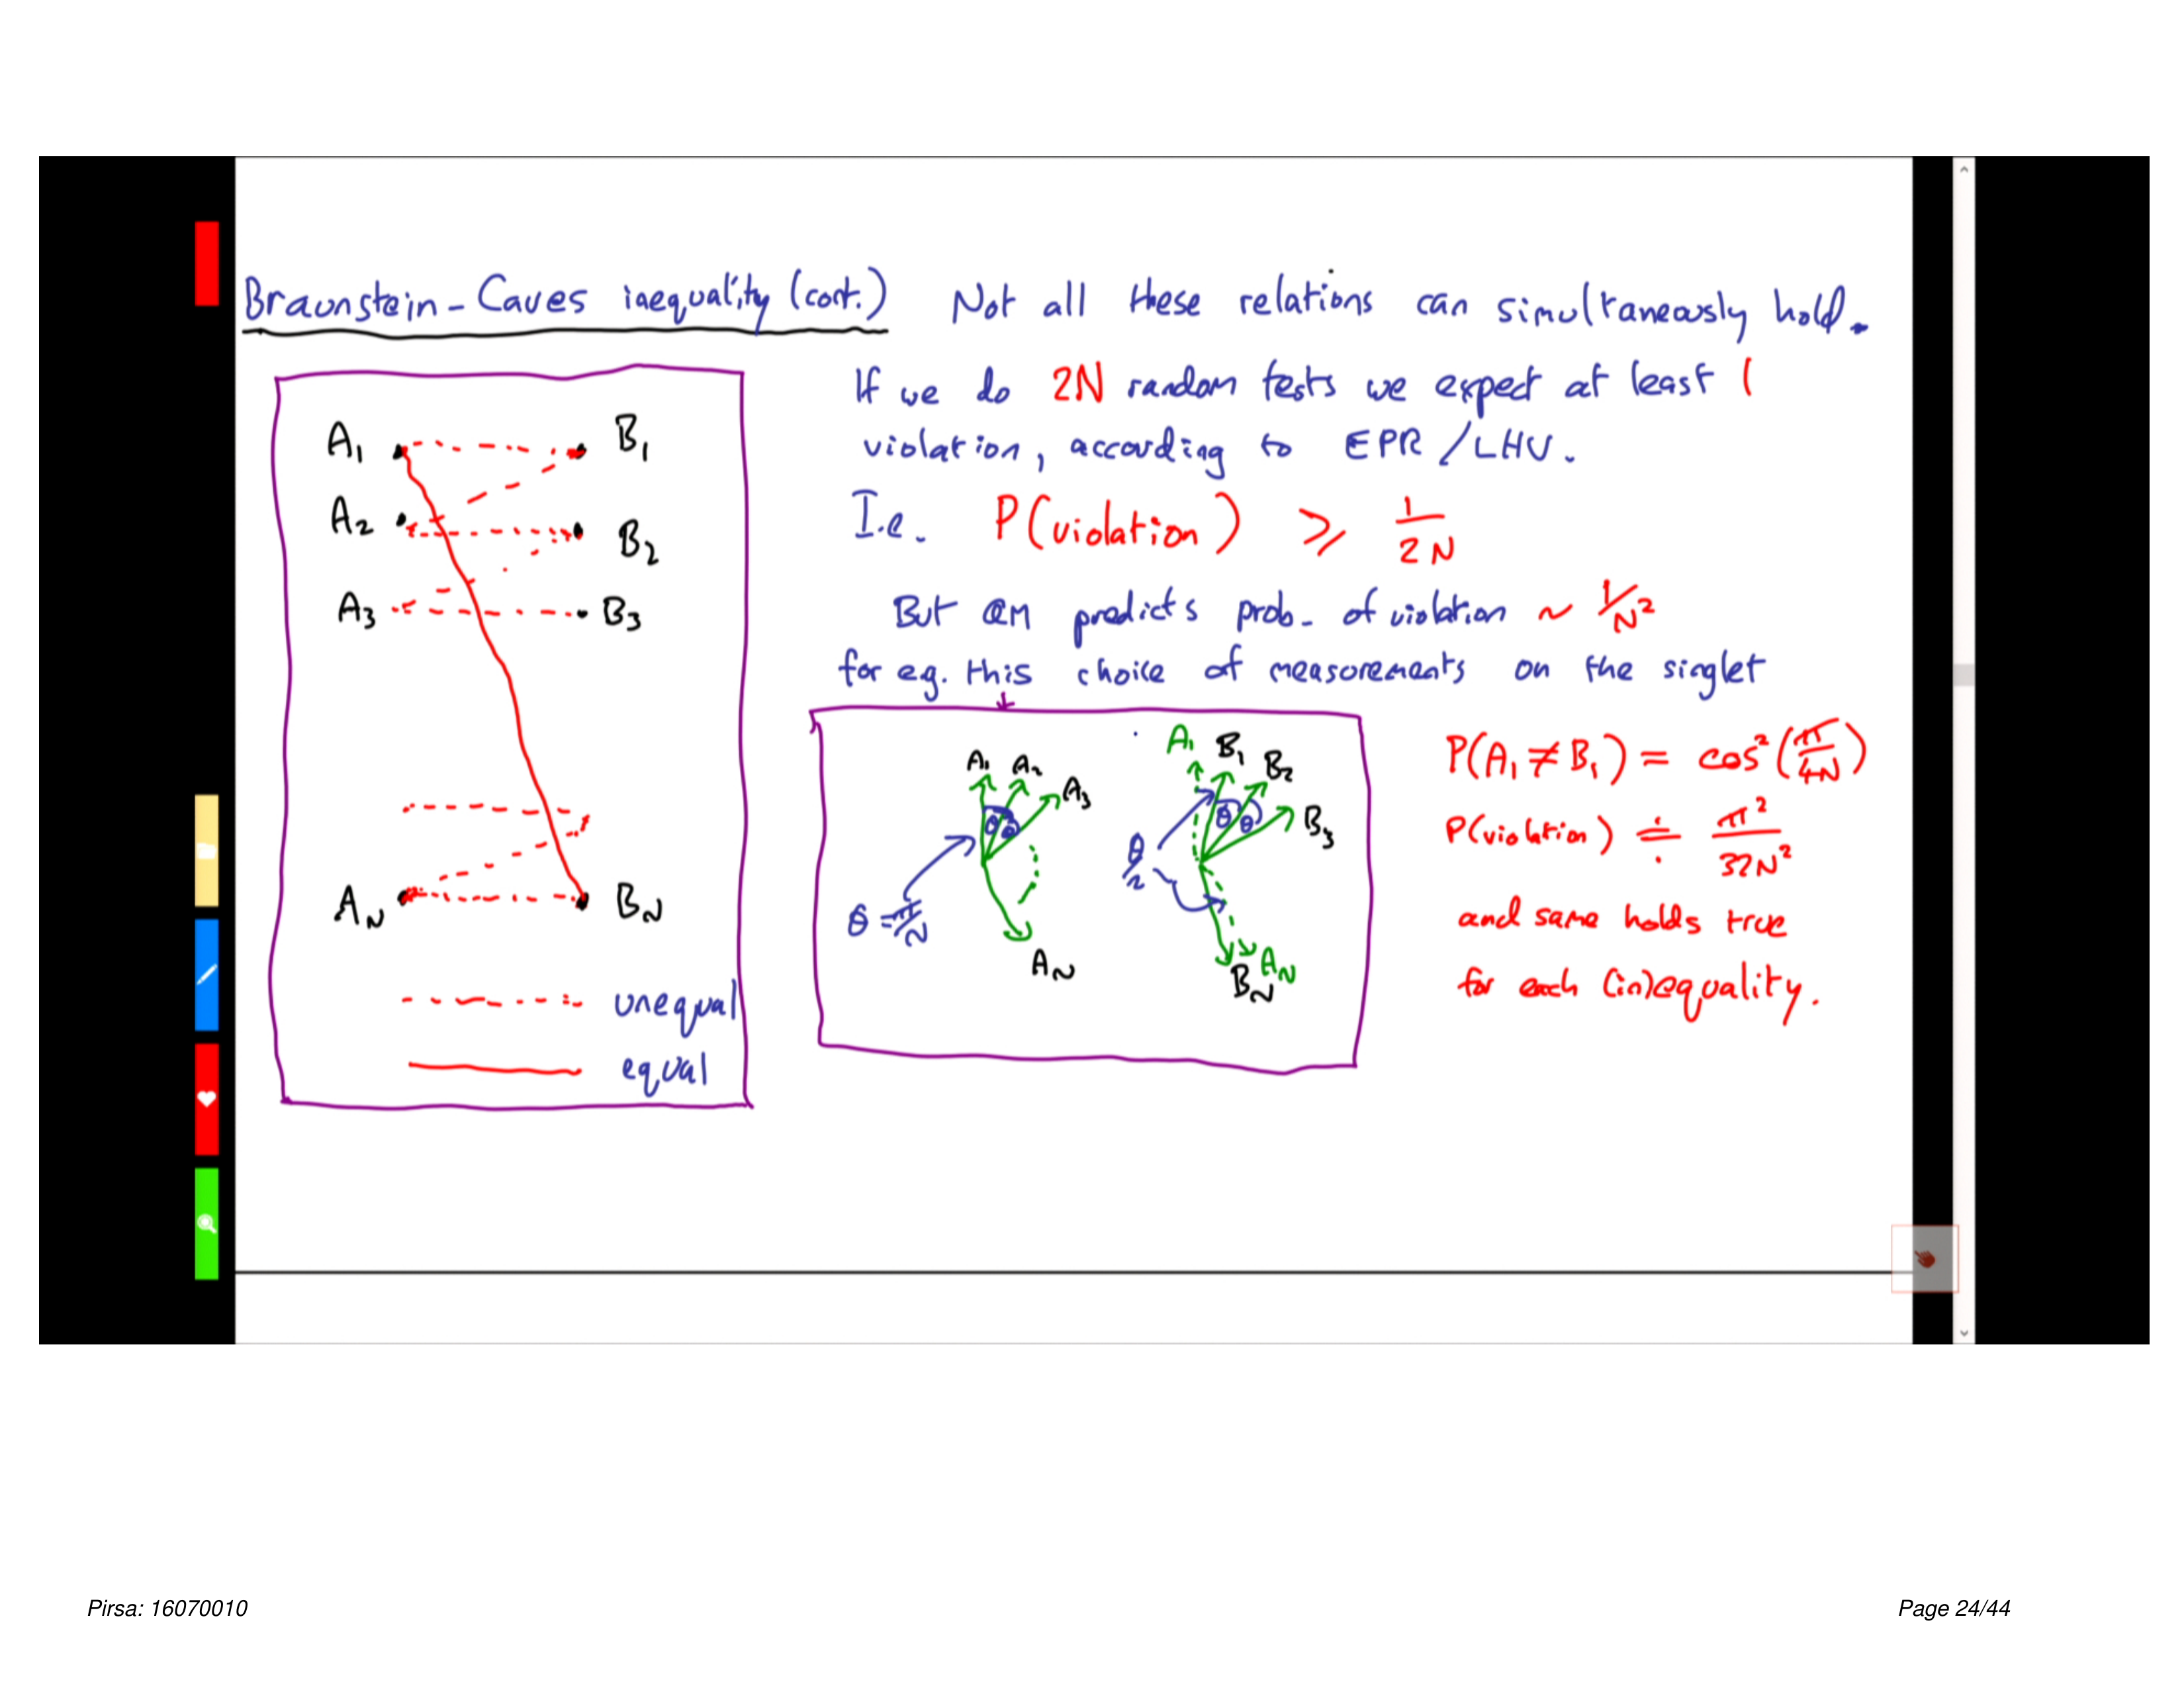 Braunstein-Caves inequality (cont.) Not all these relations can simultaneously hold.
If we do 2N random tests we expect at least 1
violation, according to EPR/LHV.
I.e. P(violation) ⩾ 1/2N
But QM predicts prob. of violation ~ 1/N²
for e.g. this choice of measurements on the singlet
A₁ B₁
A₂ B₂
A₃ B₃
A_N B_N
unequal
equal
A₁ A₂ A₃
θ θ
θ = π/N
A_N
A₁ B₁ B₂ B₃
θ θ
θ/2
B_N A_N
P(A₁ ≠ B₁) = cos²(π/4N)
P(violation) ≑ π²/32N²
and same holds true
for each (in)equality.
Pirsa: 16070010
Page 24/44